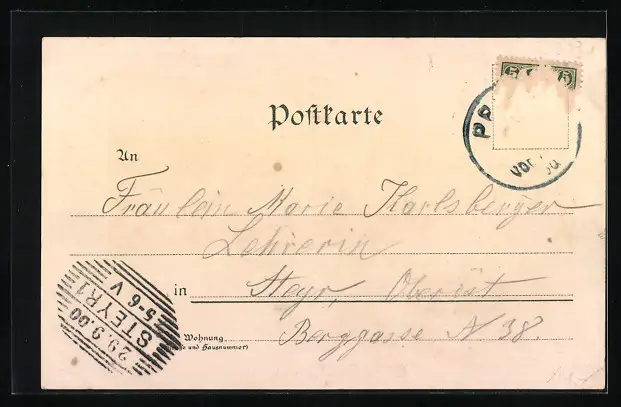 5 5
PR
vor
Postkarte
An
Fräulein Marie Karlsberger
Lehrerin
in Steyr, Oberöst
Wohnung
und Hausnummer)
Berggasse N 38.
29.9.00
STEYR 1
5-6 V